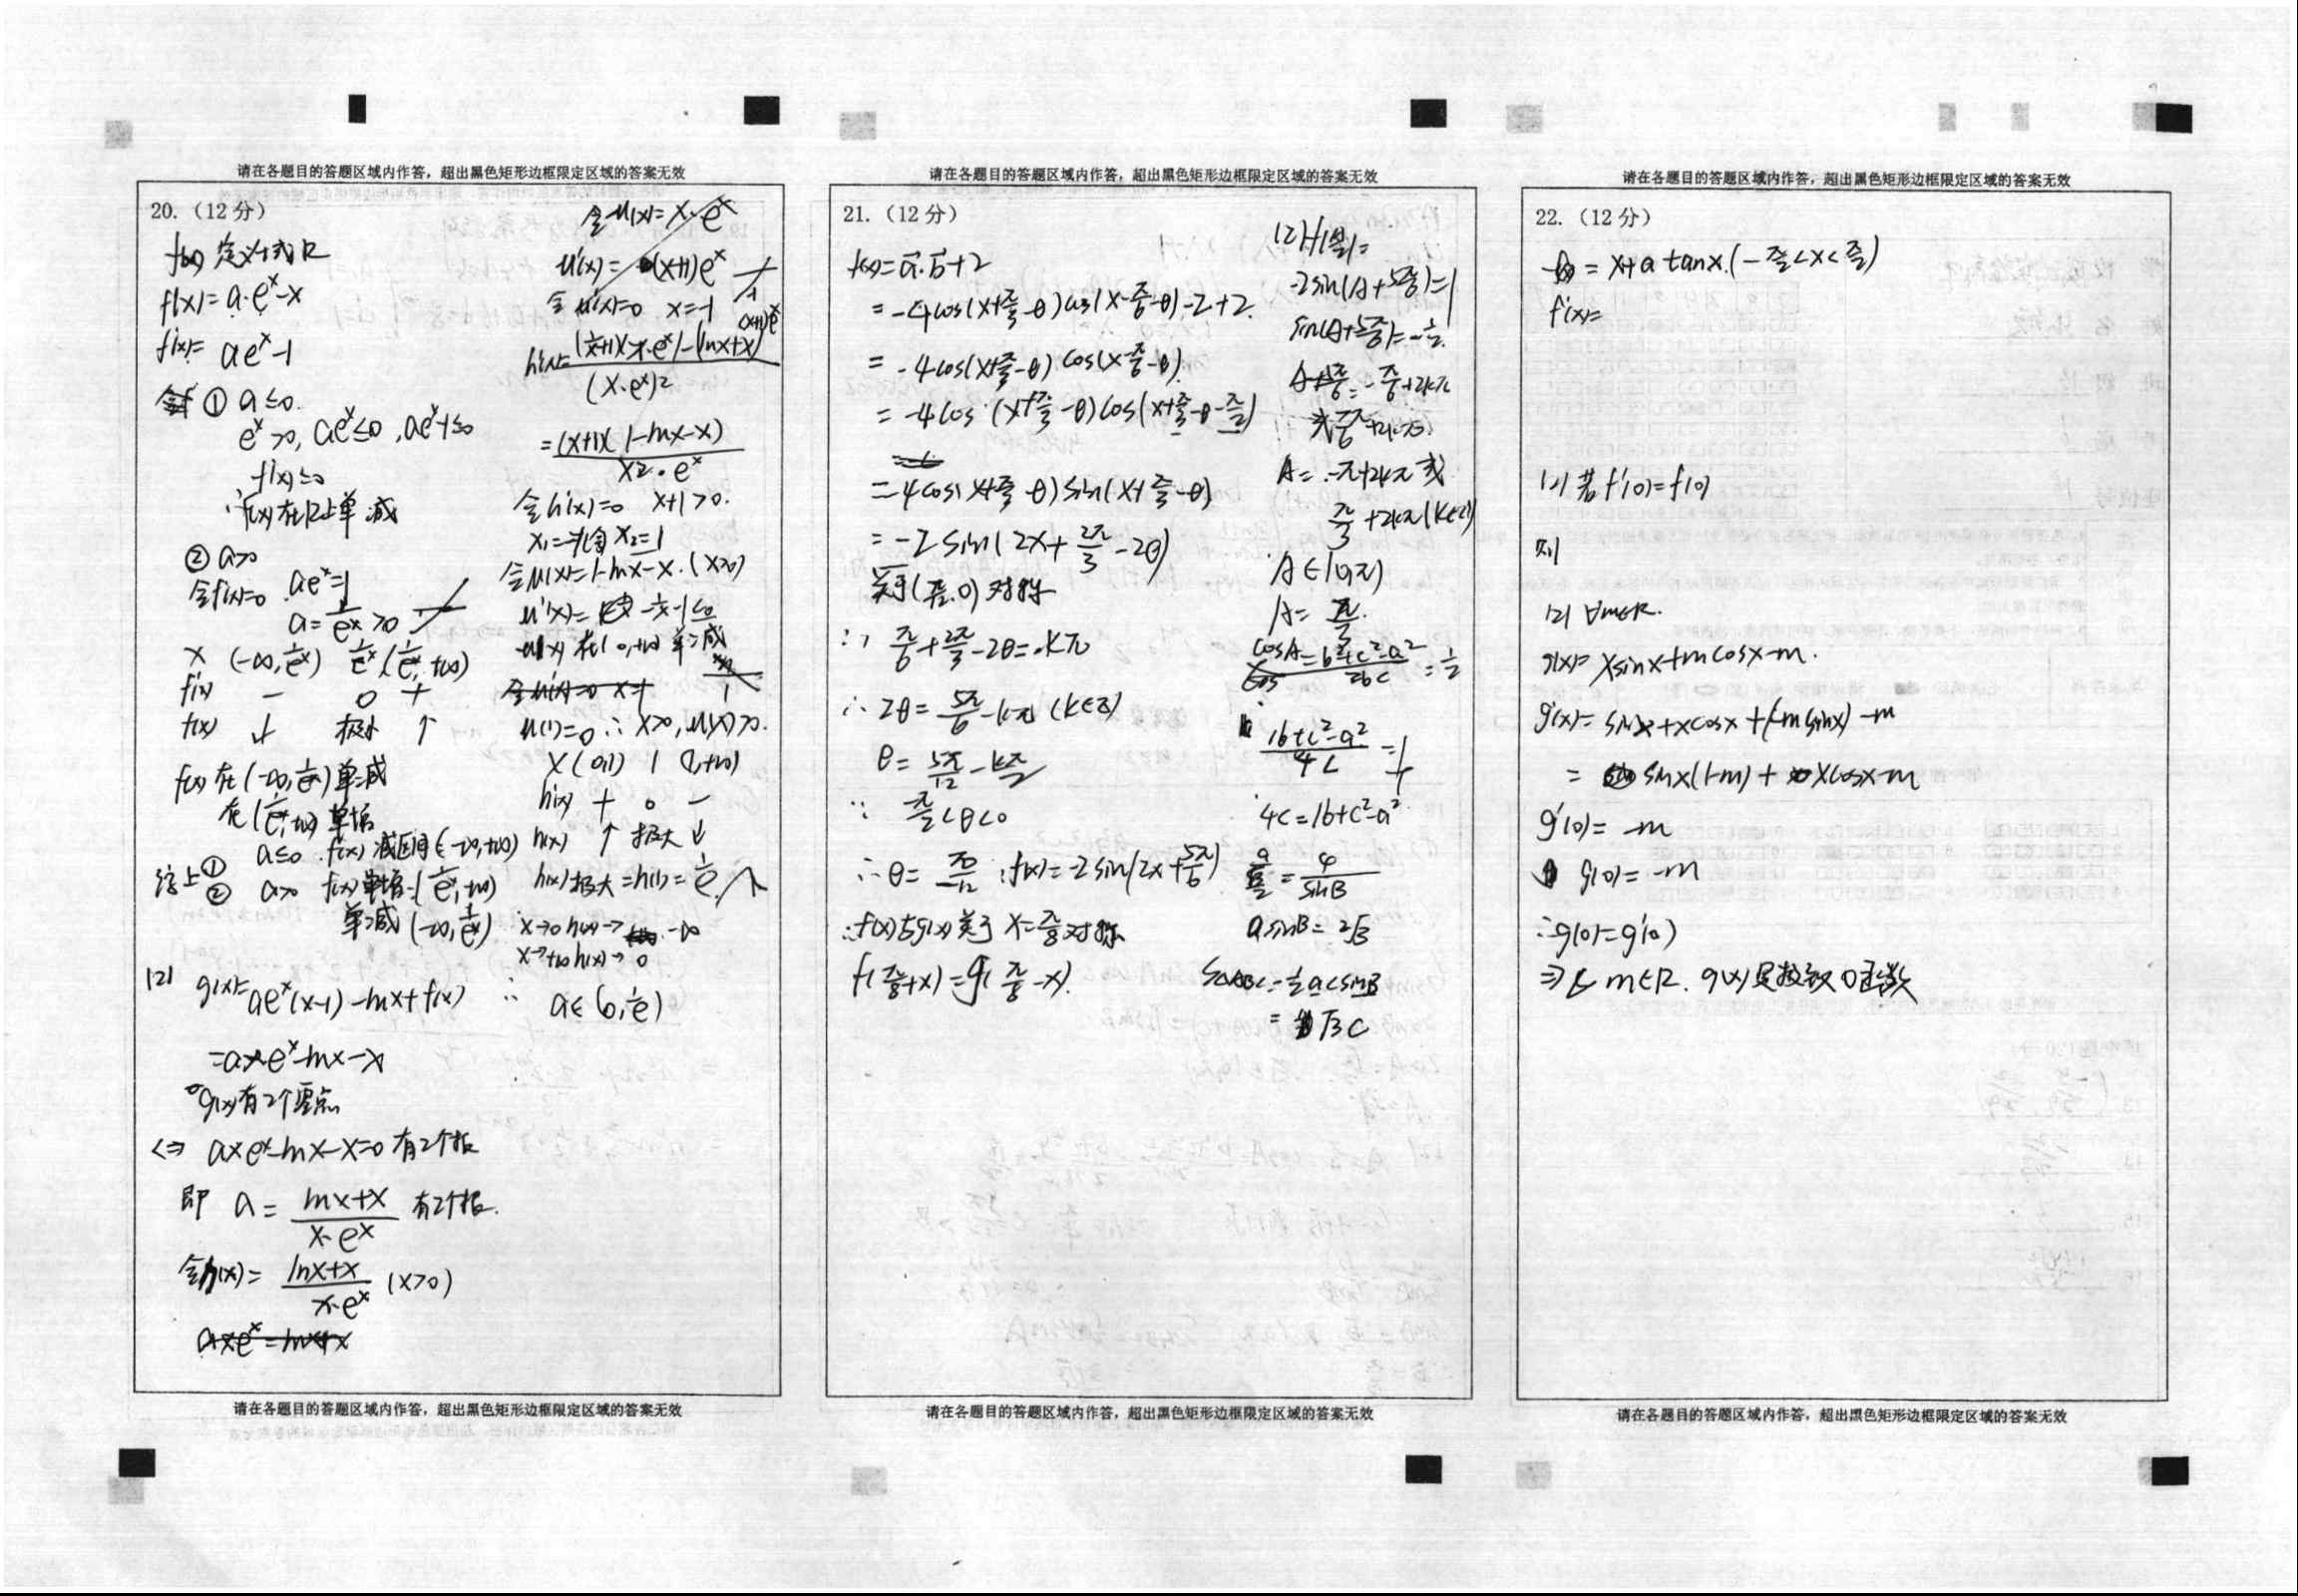 请在各题目的答题区域内作答，超出黑色矩形边框限定区域的答案无效
20.（12分）
f(x) 定义域R
f(x)=a·eˣ-x
f'(x)= aeˣ-1
① a≤0.
eˣ>0, aeˣ≤0, aeˣ-1≤0
f'(x)≤0
∴f(x)在R上单减
② a>0
令f'(x)=0 aeˣ=1
a=1/eˣ>0
x (-∞,1/eˣ) 1/eˣ (1/eˣ,+∞)
f'(x) - 0 +
f(x) ↓ 极小 ↑
f(x)在(-∞,1/eˣ)单减
在(1/eˣ,+∞)单增
综上① a≤0 f(x)减区间(-∞,+∞)
② a>0 f(x)单增(1/eˣ,+∞)
单减(-∞,1/eˣ)
(2) g(x)=aeˣ(x-1)-lnx+f(x)
=axeˣ-lnx-x
∵g(x)有2个零点
<=> axeˣ-lnx-x=0有2个根
即 a= (lnx+x)/(x·eˣ) 有2个根.
令h(x)= (lnx+x)/(x·eˣ) (x>0)
axeˣ=lnx+x
令u(x)=x·eˣ
u'(x)=(x+1)eˣ
令u'(x)=0 x=-1
h'(x)=((1/x+1)x·eˣ-(lnx+x)(x+1)eˣ)/(x·eˣ)²
=(x+1)(1-lnx-x)/(x²·eˣ)
令h'(x)=0 x+1>0.
x₂=1
令u(x)=1-lnx-x.(x>0)
u'(x)= -1/x-1<0
u(x)在(0,+∞)单减
令u(x)=0 x=1
u(1)=0 ∴x>0,u(x)>0.
x (0,1) 1 (1,+∞)
h'(x) + 0 -
h(x) ↑ 极大 ↓
h(x)极大=h(1)=1/e
x→0 h(x)→ -∞
x→+∞ h(x)→0
∴ a∈(0,1/e)
请在各题目的答题区域内作答，超出黑色矩形边框限定区域的答案无效
请在各题目的答题区域内作答，超出黑色矩形边框限定区域的答案无效
21.（12分）
f(x)=a⃗·b⃗+2
=-4cos(x+π/3-θ)cos(x-π/6-θ)-2+2.
=-4cos(x+π/3-θ)cos(x-π/6-θ).
=-4cos(x+π/3-θ)cos(x+π/3-θ-π/2)
=-4cos(x+π/3-θ)sin(x+π/3-θ)
=-2sin(2x+2π/3-2θ)
关于(π/12,0)对称
∴ π/6+2π/3-2θ=kπ
∴ 2θ=5π/6-kπ (k∈Z)
θ=5π/12-kπ/2
∵ -π/2<θ<0
∴θ=-π/12 ∴f(x)=-2sin(2x+5π/6)
∵f(x)与g(x)关于x=π/8对称
f(π/8+x)=g(π/8-x).
-2sin(A+5π/6)=1
sin(A+5π/6)=-1/2.
A+5π/6=-π/6+2kπ
A=-π+2kπ或
π/3+2kπ(k∈Z)
A∈(0,π)
A=π/3.
cosA=(b²+c²-a²)/2bc=1/2
(16+c²-a²)/4c=1
4c=16+c²-a²
=4/sinB
asinB=2√3
S△ABC=1/2acsinB
=√3c
请在各题目的答题区域内作答，超出黑色矩形边框限定区域的答案无效
请在各题目的答题区域内作答，超出黑色矩形边框限定区域的答案无效
22.（12分）
f(x)=x+a tanx.(-π/2<x<π/2)
f'(x)=
(2) 若f'(0)=f(0)
则
(2) ∀m∈R.
g(x)=xsinx+mcosx-m.
g'(x)=sinx+xcosx+(-msinx)-m
=sinx(1-m)+xcosx-m
g'(0)=-m
g(0)=-m
∴g(0)=g'(0)
m∈R. g(x)
请在各题目的答题区域内作答，超出黑色矩形边框限定区域的答案无效